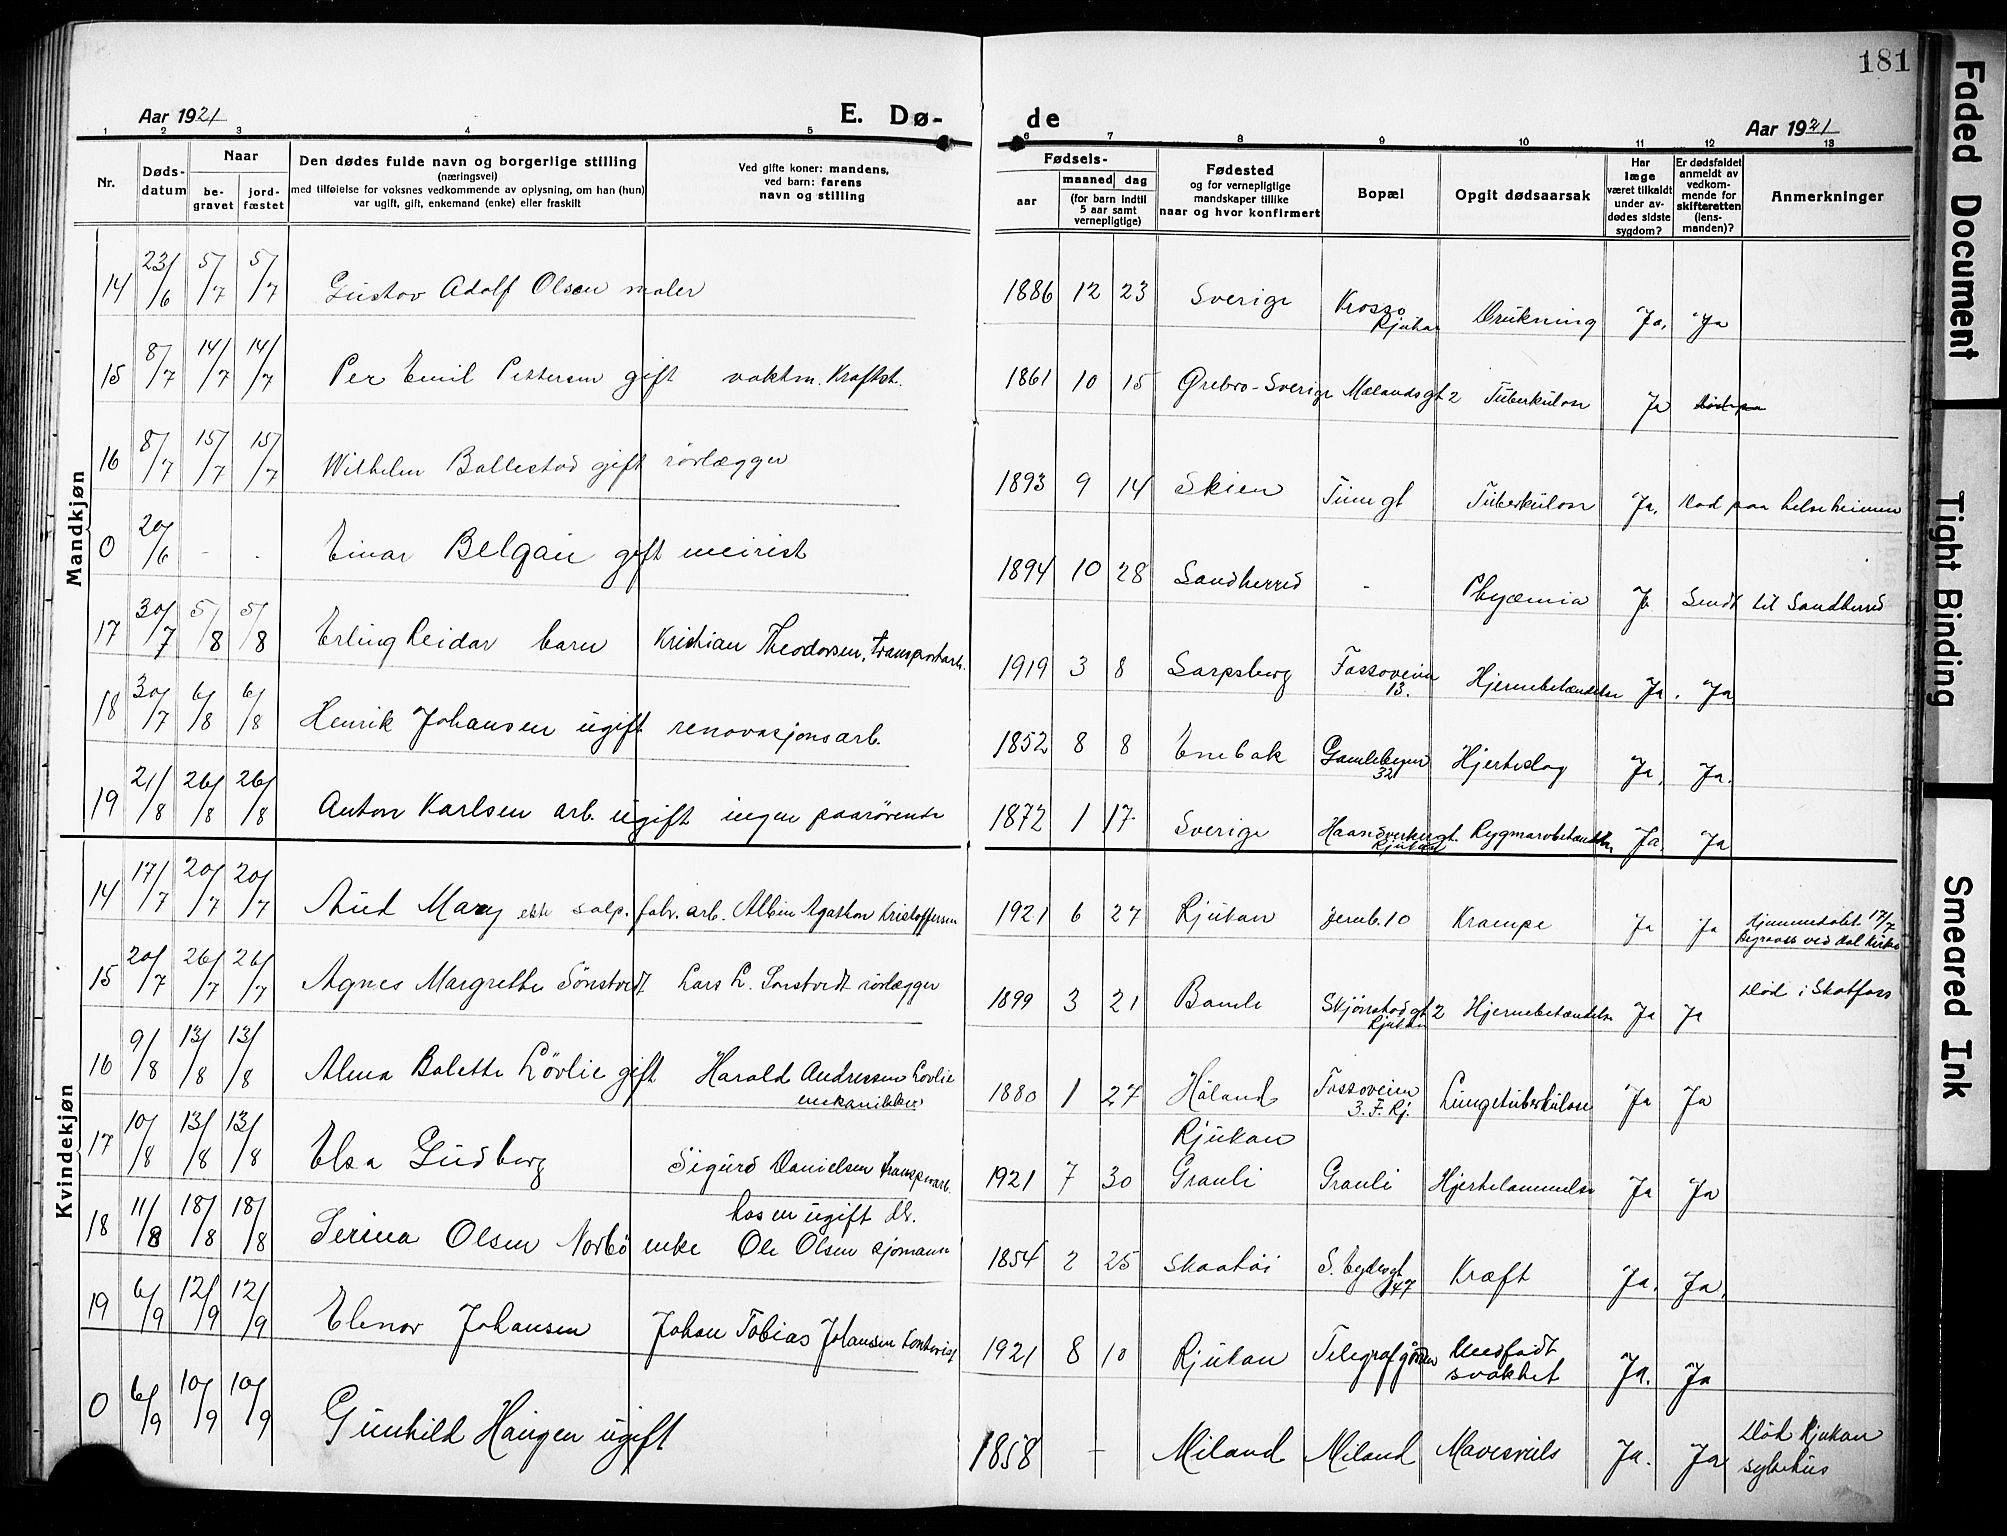 181
Aar 1921 E. Dø- de Aar 1921
1 2 3 4 5 6 7 8 9 10 11 12 13
Nr.
Døds-
datum
Naar
be-
gravet
jord-
fæstet
Den dødes fulde navn og borgerlige stilling
(næringsvei)
med tilføielse for voksnes vedkommende av oplysning, om han (hun)
var ugift, gift, enkemand (enke) eller fraskilt
Ved gifte koner: mandens,
ved barn: farens
navn og stilling
Fødsels-
aar
maaned dag
(for barn indtil
5 aar samt
vernepligtige)
Fødested
og for vernepligtige
mandskaper tillike
naar og hvor konfirmert
Bopæl
Opgit dødsaarsak
Har
læge
været tilkaldt
under av-
dødes sidste
sygdom?
Er dødsfaldet
anmeldt av
vedkom-
mende for
skifteretten
(lens-
manden)?
Anmerkninger
Mandkjøn
14 23/6 5/7 5/7 Gustav Adolf Olsen maler 1886 12 23 Sverige Krosso Rjukan Drukning Ja. Ja
15 8/7 14/7 14/7 Per Emil Pettersen gift vaktm. Kraftst. 1861 10 15 Ørebro - Sverige Mælandsgt 2 Tuberkulose Ja
16 8/7 15/7 15/7 Wilhelm Ballestad gift rørlægger 1893 9 14 Skien Tinngt Tuberkulose Ja. Død paa helseheimen
0 20/6 - - Einar Belgau gift meirist 1894 10 28 Sandherred - Pyæmia Ja Sendt til Sandherred
17 30/7 5/8 5/8 Erling Reidar barn Kristian Theodorsen, transportarb. 1919 3 8 Sarpsborg Fossoveien 13. Hjernebetændelse Ja. Ja
18 30/7 6/8 6/8 Henrik Johansen ugift renovasjonsarb. 1852 8 8 Enebak Gamlebyen 32 Hjerteslag Ja. Ja.
19 21/8 26/8 26/8 Anton Karlsen arb. ugift ingen paarørende 1872 1 17 Sverige Haandverkergt. Rjukan Rygmarvbetændelse Ja. Ja
Kvindekjøn
14 17/7 20/7 20/7 Aud Mary ekte salp. fabr. arb. Albin Agathon Kristoffersen 1921 6 27 Rjukan Jernb. 10 Krampe Ja Ja Hjemmedøbt 17/7
Begraves ved Dal kirke
15 20/7 26/7 26/7 Agnes Margrethe Sønstvedt Lars L. Sønstvedt rørlægger 1899 3 21 Bamle Skjønstadgt 2 Rjukan Hjernebetændelse Ja Ja Død i Skotfoss
16 9/8 13/8 13/8 Alma Bolette Lövlie gift Harald Andressen Lovlie
mekanikker 1880 1 27 Høland Fossoveien 3. F. Rj. Lungetuberkulose Ja Ja
17 10/8 13/8 13/8 Elsa Gudborg Sigurd Danielsen transporarb. 1921 7 30 Rjukan
Grauli Grauli Hjertelammelse Ja Ja
18 11/8 18/8 18/8 Serina Olsen Norbö enke Ole Olsen sjömann
hos en ugift dt. 1854 2 25 Skaatøi S. bydesgt 47 Kræft Ja. Ja.
19 6/9 12/9 12/9 Elenor Johansen Johan Tobias Johansen kontorist 1921 8 10 Rjukan Telegrafgården Medfødt
svakhet Ja. Ja
0 6/9 10/9 10/9 Gunhild Haugen ugift 1858 - Miland Miland Mavesviils Ja. Ja Død Rjukan
sykehus
Faded Document
Tight Binding
Smeared Ink